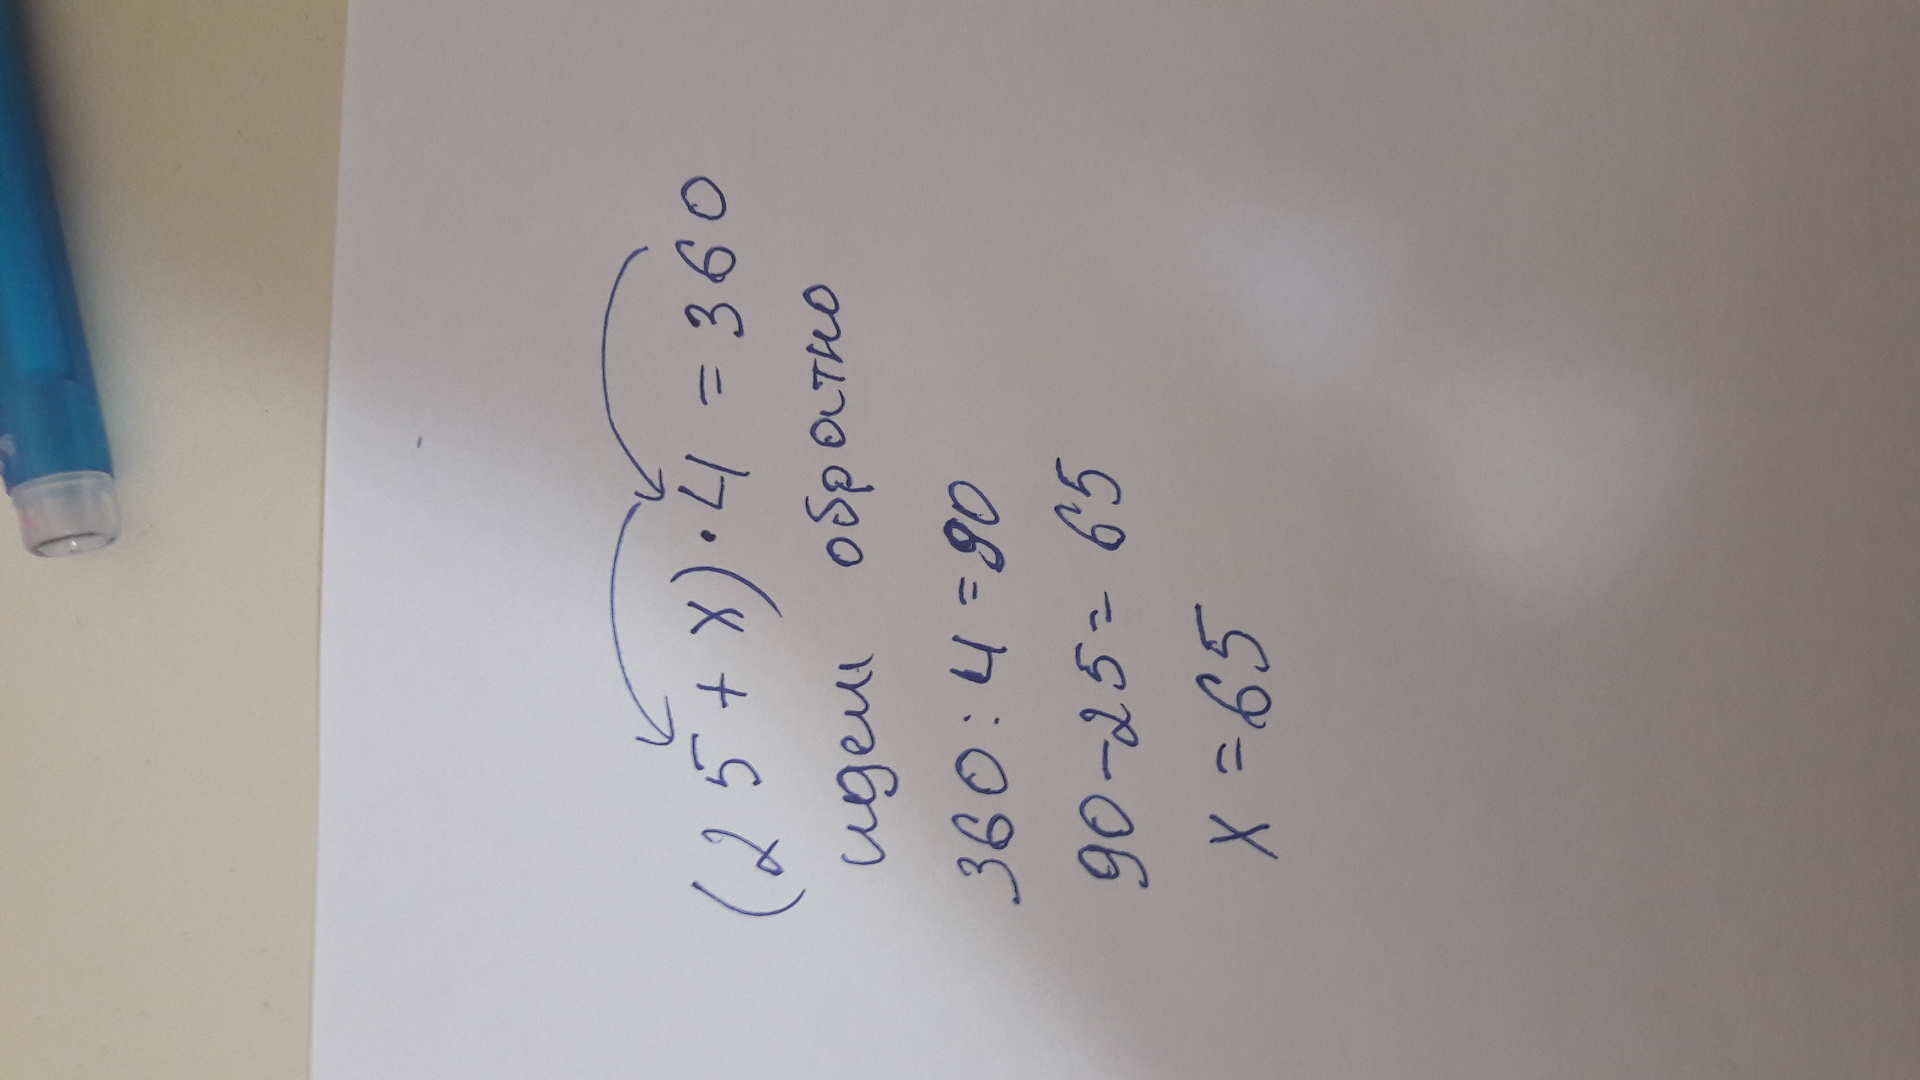 (25+x)·4=360
идем обратно
360:4=90
90-25=65
x=65